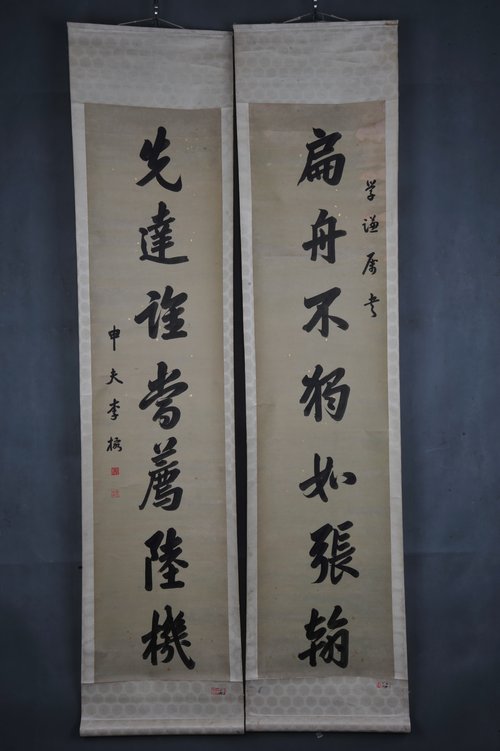 學謙屬書
扁舟不獨如張翰
先達誰當薦陸機
申夫李榕